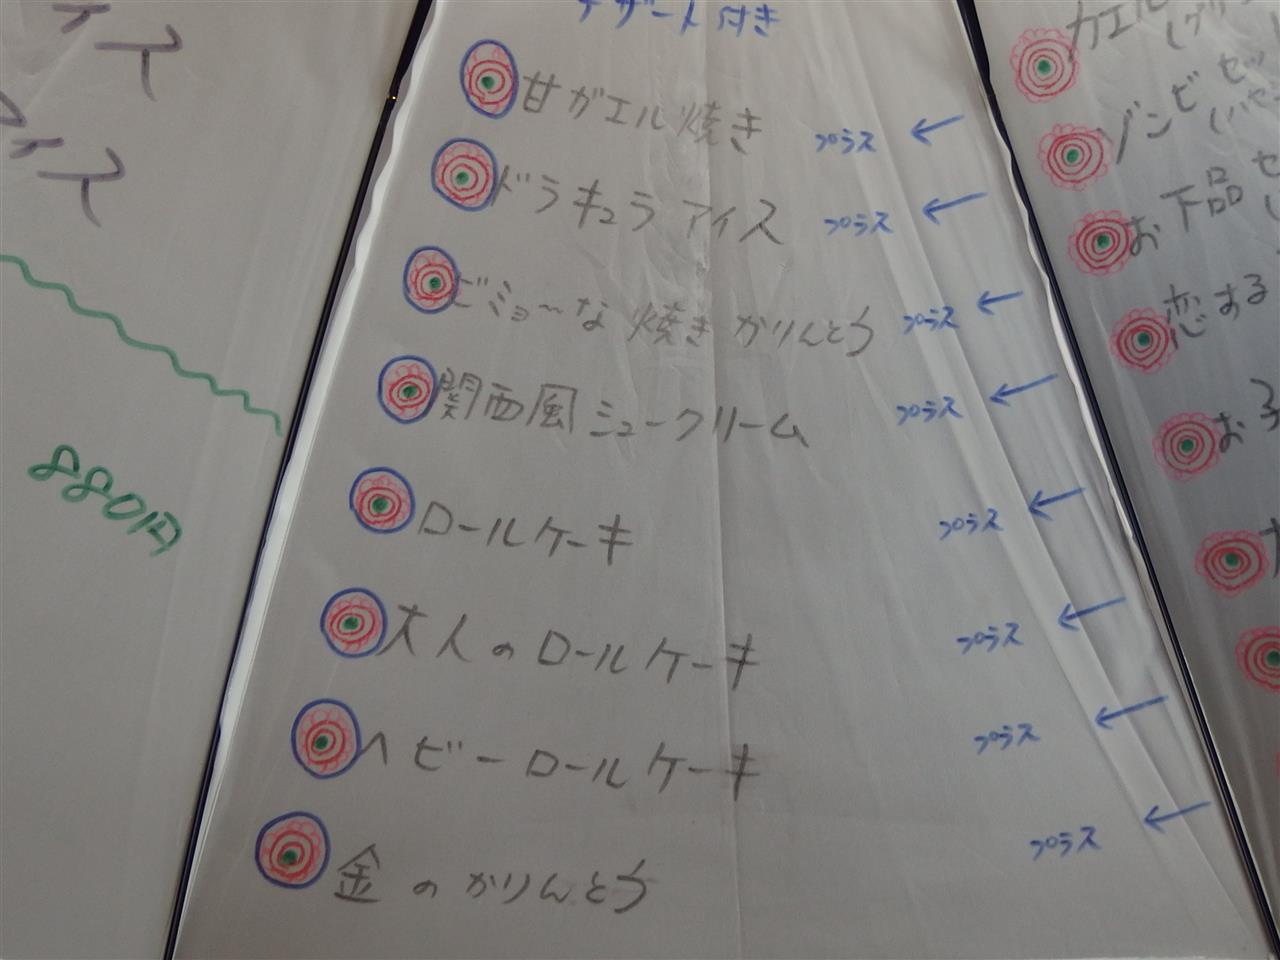 デザート付き
甘ガエル焼き プラス ←
ドラキュラアイス プラス ←
ビミョ〜な焼きかりんとう プラス ←
関西風ミュークリーム プラス ←
ロールケーキ プラス ←
大人のロールケーキ プラス ←
ヘビーロールケーキ プラス ←
金のかりんとう プラス ←
880円
カエル
ゾンビセッ
お下品セ
恋する
お子